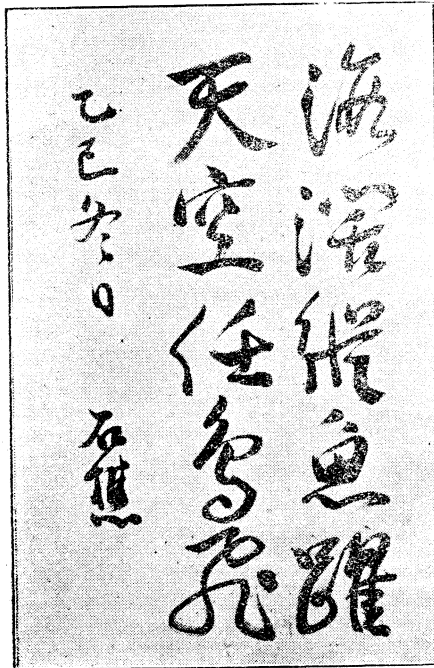 海濶從魚躍
天空任鳥飛
乙巳冬日 石樵